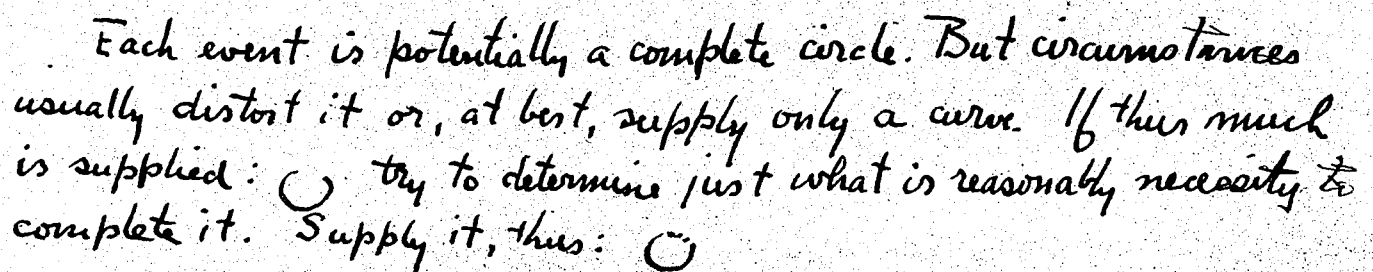 Each event is potentially a complete circle. But circumstances
usually distort it or, at best, supply only a curve. If thus much
is supplied: try to determine just what is reasonably necessity to
complete it. Supply it, thus: